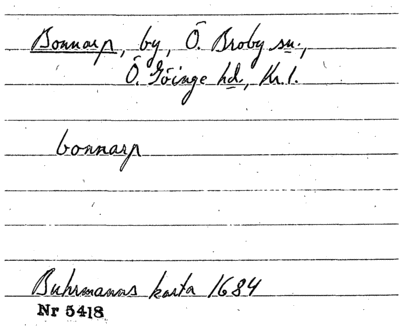 Bonnarp, by, Ö. Broby sn.,
Ö. Göinge hd, Kr. l.
bonnarp
Buhrmanns karta 1684
Nr 5418